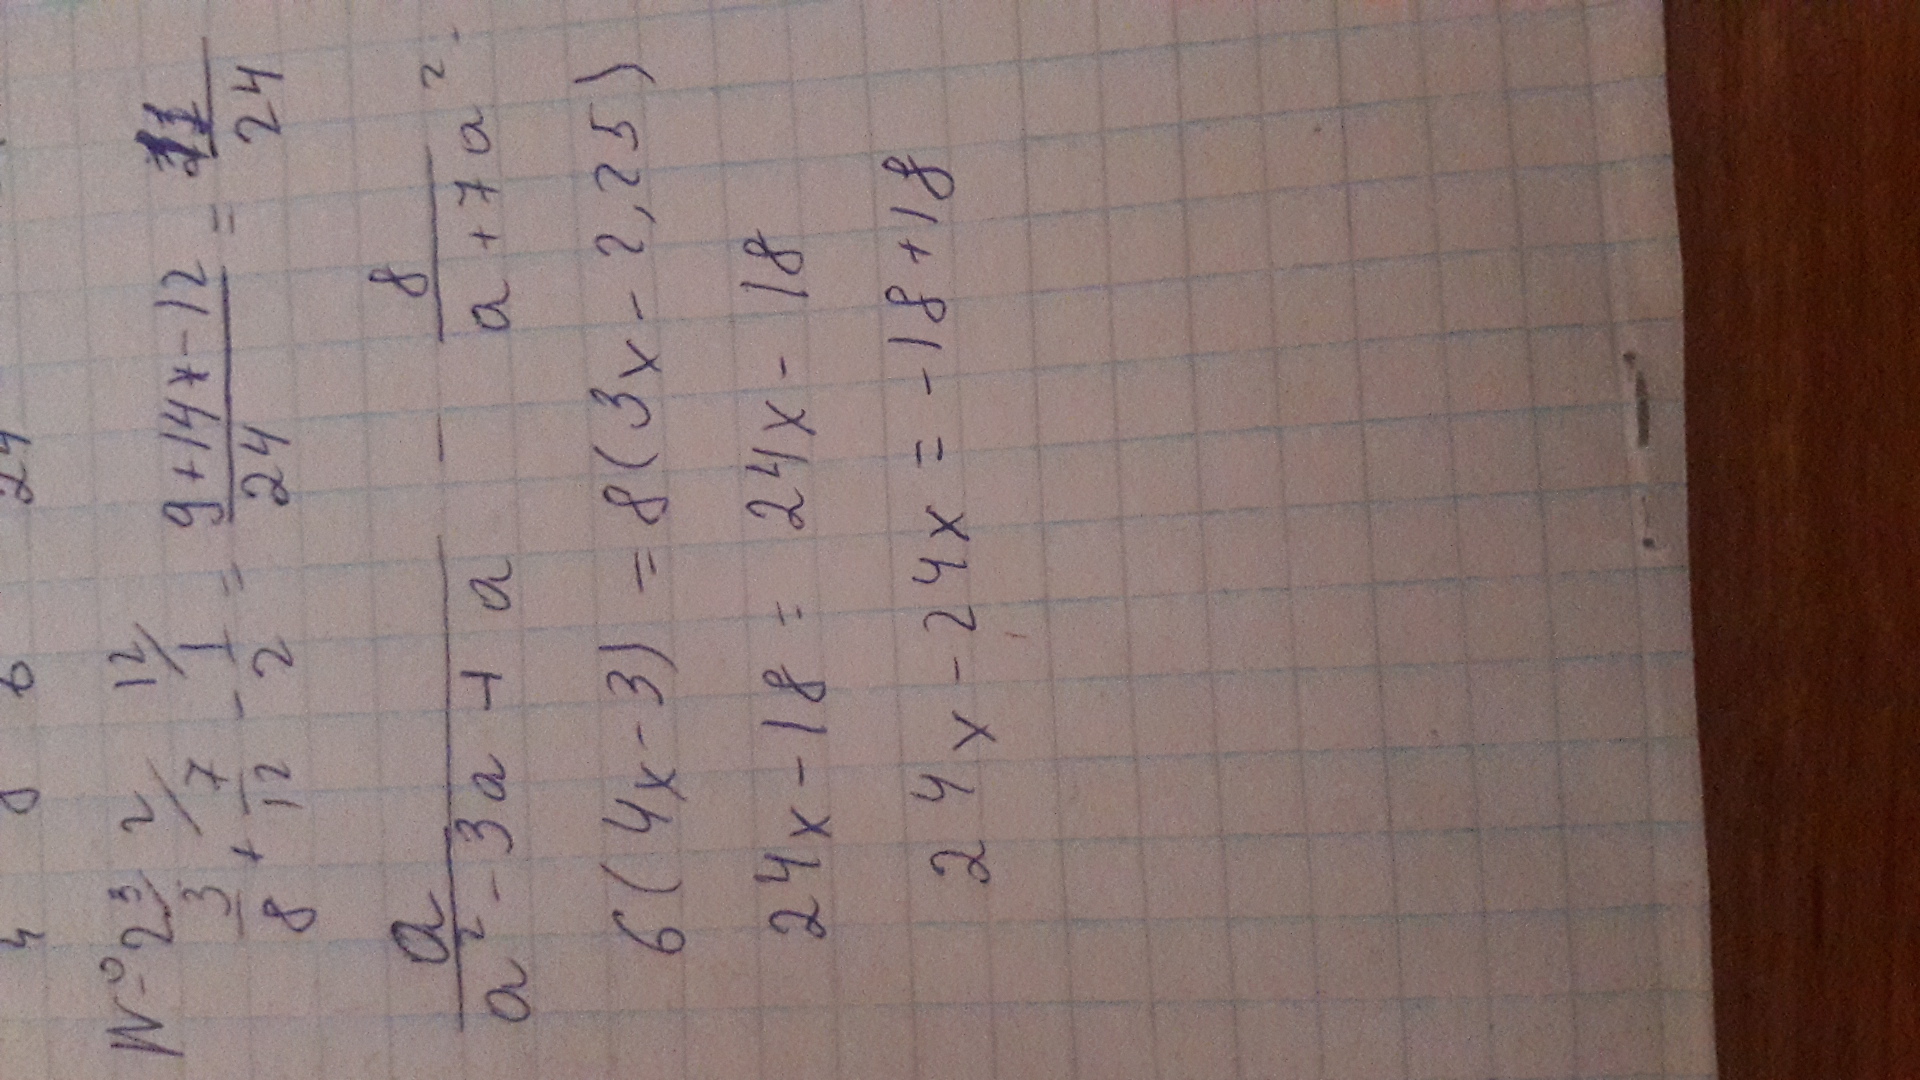 4 8 6 24
№ 2 3/ 2/ 12/
3/8 + 7/12 - 1/2 = 9+14-12/24 = 11/24
a/a²-3a+a - 8/a+7a²
6(4x-3) = 8(3x-2,25)
24x-18 = 24x-18
24x-24x = -18+18